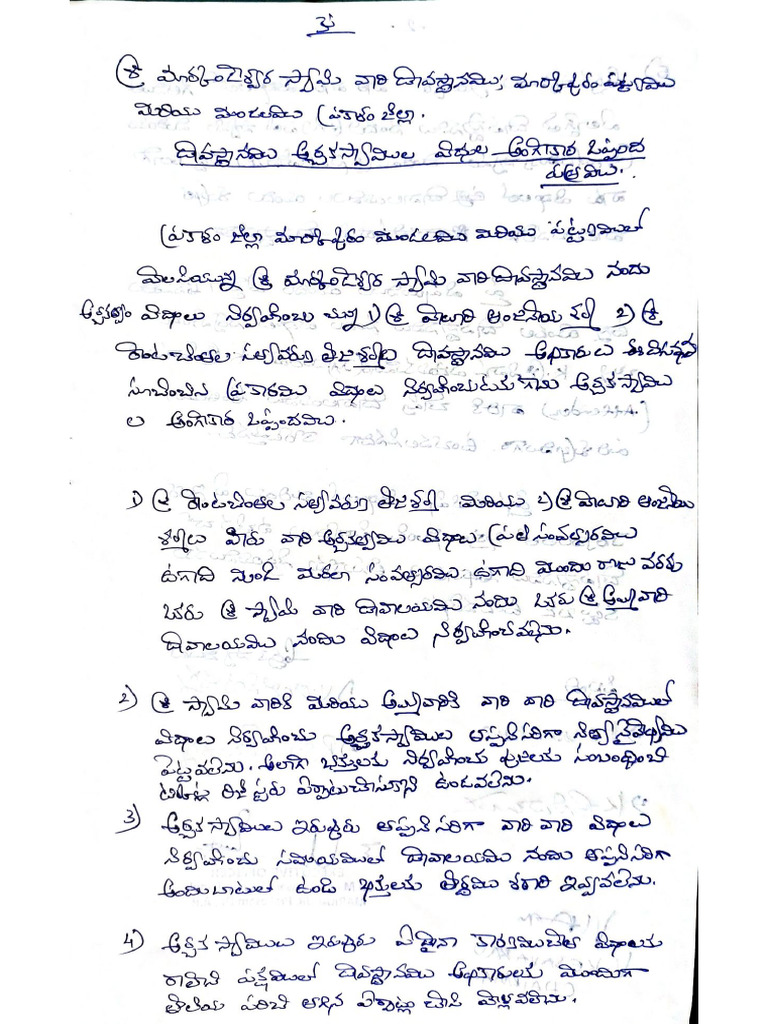 శ్రీ మార్కండేశ్వర స్వామి వారి దేవస్థానము, మార్కాపురం పట్టణము
మరియు మండలము ప్రకాశం జిల్లా.
దేవస్థానము అర్చకస్వాముల విధుల అంగీకార ఒప్పంద
పత్రము.
ప్రకాశం జిల్లా మార్కాపురం మండలము మరియు పట్టణములో
వెలసియున్న శ్రీ మార్కండేశ్వర స్వామి వారి దేవస్థానము నందు
అర్చకత్వం విధులు నిర్వహించు చున్న 1) శ్రీ పాటూరి ఆంజనేయ శర్మ 2) శ్రీ
రెంటచింతల సత్యవరుణ తేజశర్మల దేవస్థానము అధికారులు ఈ దిగువన
సూచించిన ప్రకారము విధులు నిర్వహించుటకుగాను అర్చకస్వాము
ల అంగీకార ఒప్పందము.
1) శ్రీ రెంటచింతల సత్యవరుణ తేజశర్మ మరియు 2) శ్రీ పాటూరి ఆంజనేయ
శర్మలు వీరు వారి అర్చకత్వము విధులు ప్రతి సంవత్సరము
ఉగాది నుండి మరలా సంవత్సరము ఉగాది ముందు రోజు వరకు
ఒకరు శ్రీ స్వామి వారి దేవాలయము నందు, ఒకరు శ్రీ అమ్మవారి
దేవాలయము నందు విధులు నిర్వహించవలెను.
2) శ్రీ స్వామి వారికి మరియు అమ్మవారికి వారి వారి దేవస్థానములో
విధులు నిర్వహించు అర్చకస్వాముల తప్పనిసరిగా నిత్య నైవేద్యము
పెట్టవలెను. అలాగే భక్తులకు నిర్వహించు పూజలకు సంబంధించి
టికెట్లు రిజిస్టరు ఏర్పాటుచేసుకొని ఉండవలెను.
3) అర్చక స్వాములు ఇరువురు తప్పనిసరిగా వారి వారి విధులు
నిర్వహించు సమయములో దేవాలయము నందు తప్పనిసరిగా
అందుబాటులో ఉండి భక్తులకు తీర్థము శఠారి ఇవ్వవలెను.
4) అర్చక స్వాములు ఇరువురు ఏదైనా కారణముచేత విధులకు
రాలేని పక్షములో దేవస్థానము అధికారులకు ముందుగా
తెలియ పరిచి తగిన ఏర్పాట్లు చేసి వెళ్లవలెను.